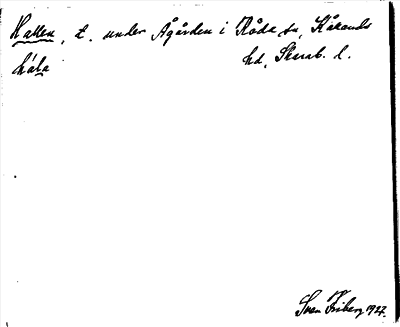 Hallen, t. under Ågården i Råda sn, Kållands
hála hd, Skarab. l.
Sven Friberg 1927.